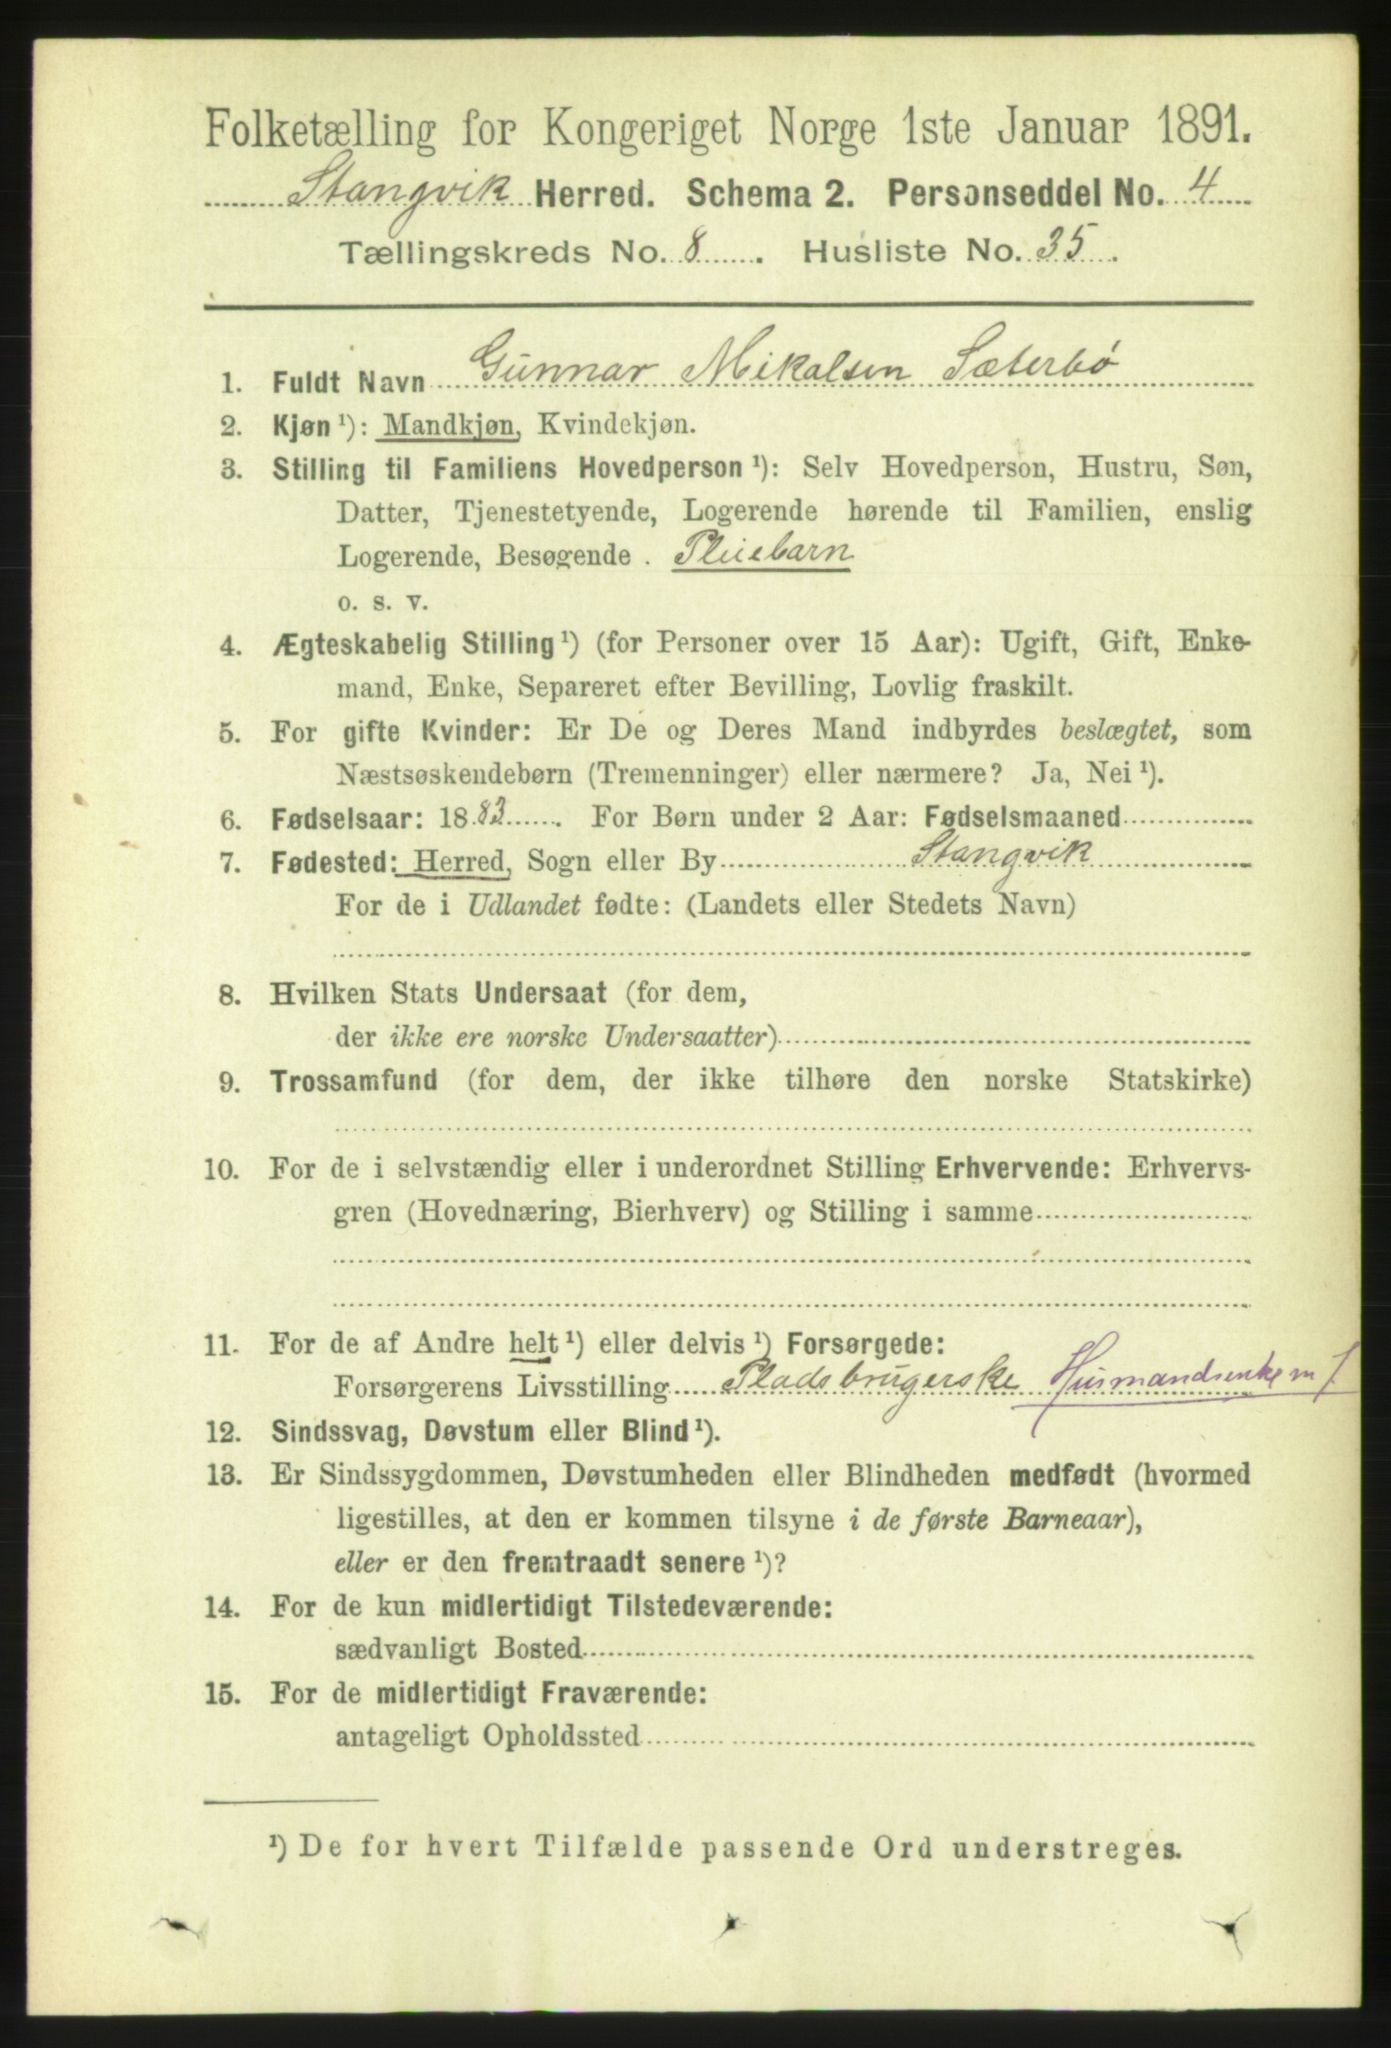 Folketælling for Kongeriget Norge 1ste Januar 1891.
Stangvik Herred. Schema 2. Personseddel No. 4
Tællingskreds No. 8. Husliste No. 35.
1. Fuldt Navn Gunnar Mikalsen Sæterbø
2. Kjøn ¹): Mandkjøn, Kvindekjøn.
3. Stilling til Familiens Hovedperson ¹): Selv Hovedperson, Hustru, Søn,
Datter, Tjenestetyende, Logerende hørende til Familien, enslig
Logerende, Besøgende . Pleiebarn
o. s. v.
4. Ægteskabelig Stilling ¹) (for Personer over 15 Aar): Ugift, Gift, Enke-
mand, Enke, Separeret efter Bevilling, Lovlig fraskilt.
5. For gifte Kvinder: Er De og Deres Mand indbyrdes beslægtet, som
Næstsøskendebørn (Tremenninger) eller nærmere? Ja, Nei ¹).
6. Fødselsaar: 1883. For Børn under 2 Aar: Fødselsmaaned
7. Fødested: Herred, Sogn eller By Stangvik
For de i Udlandet fødte: (Landets eller Stedets Navn)
8. Hvilken Stats Undersaat (for dem,
der ikke ere norske Undersaatter)
9. Trossamfund (for dem, der ikke tilhøre den norske Statskirke)
10. For de i selvstændig eller i underordnet Stilling Erhvervende: Erhvervs-
gren (Hovednæring, Bierhverv) og Stilling i samme
11. For de af Andre helt ¹) eller delvis ¹) Forsørgede:
Forsørgerens Livsstilling Pladsbrugerske Husmandsenke m J.
12. Sindssvag, Døvstum eller Blind ¹).
13. Er Sindssygdommen, Døvstumheden eller Blindheden medfødt (hvormed
ligestilles, at den er kommen tilsyne i de første Barneaar),
eller er den fremtraadt senere ¹)?
14. For de kun midlertidigt Tilstedeværende:
sædvanligt Bosted
15. For de midlertidigt Fraværende:
antageligt Opholdssted
¹) De for hvert Tilfælde passende Ord understreges.